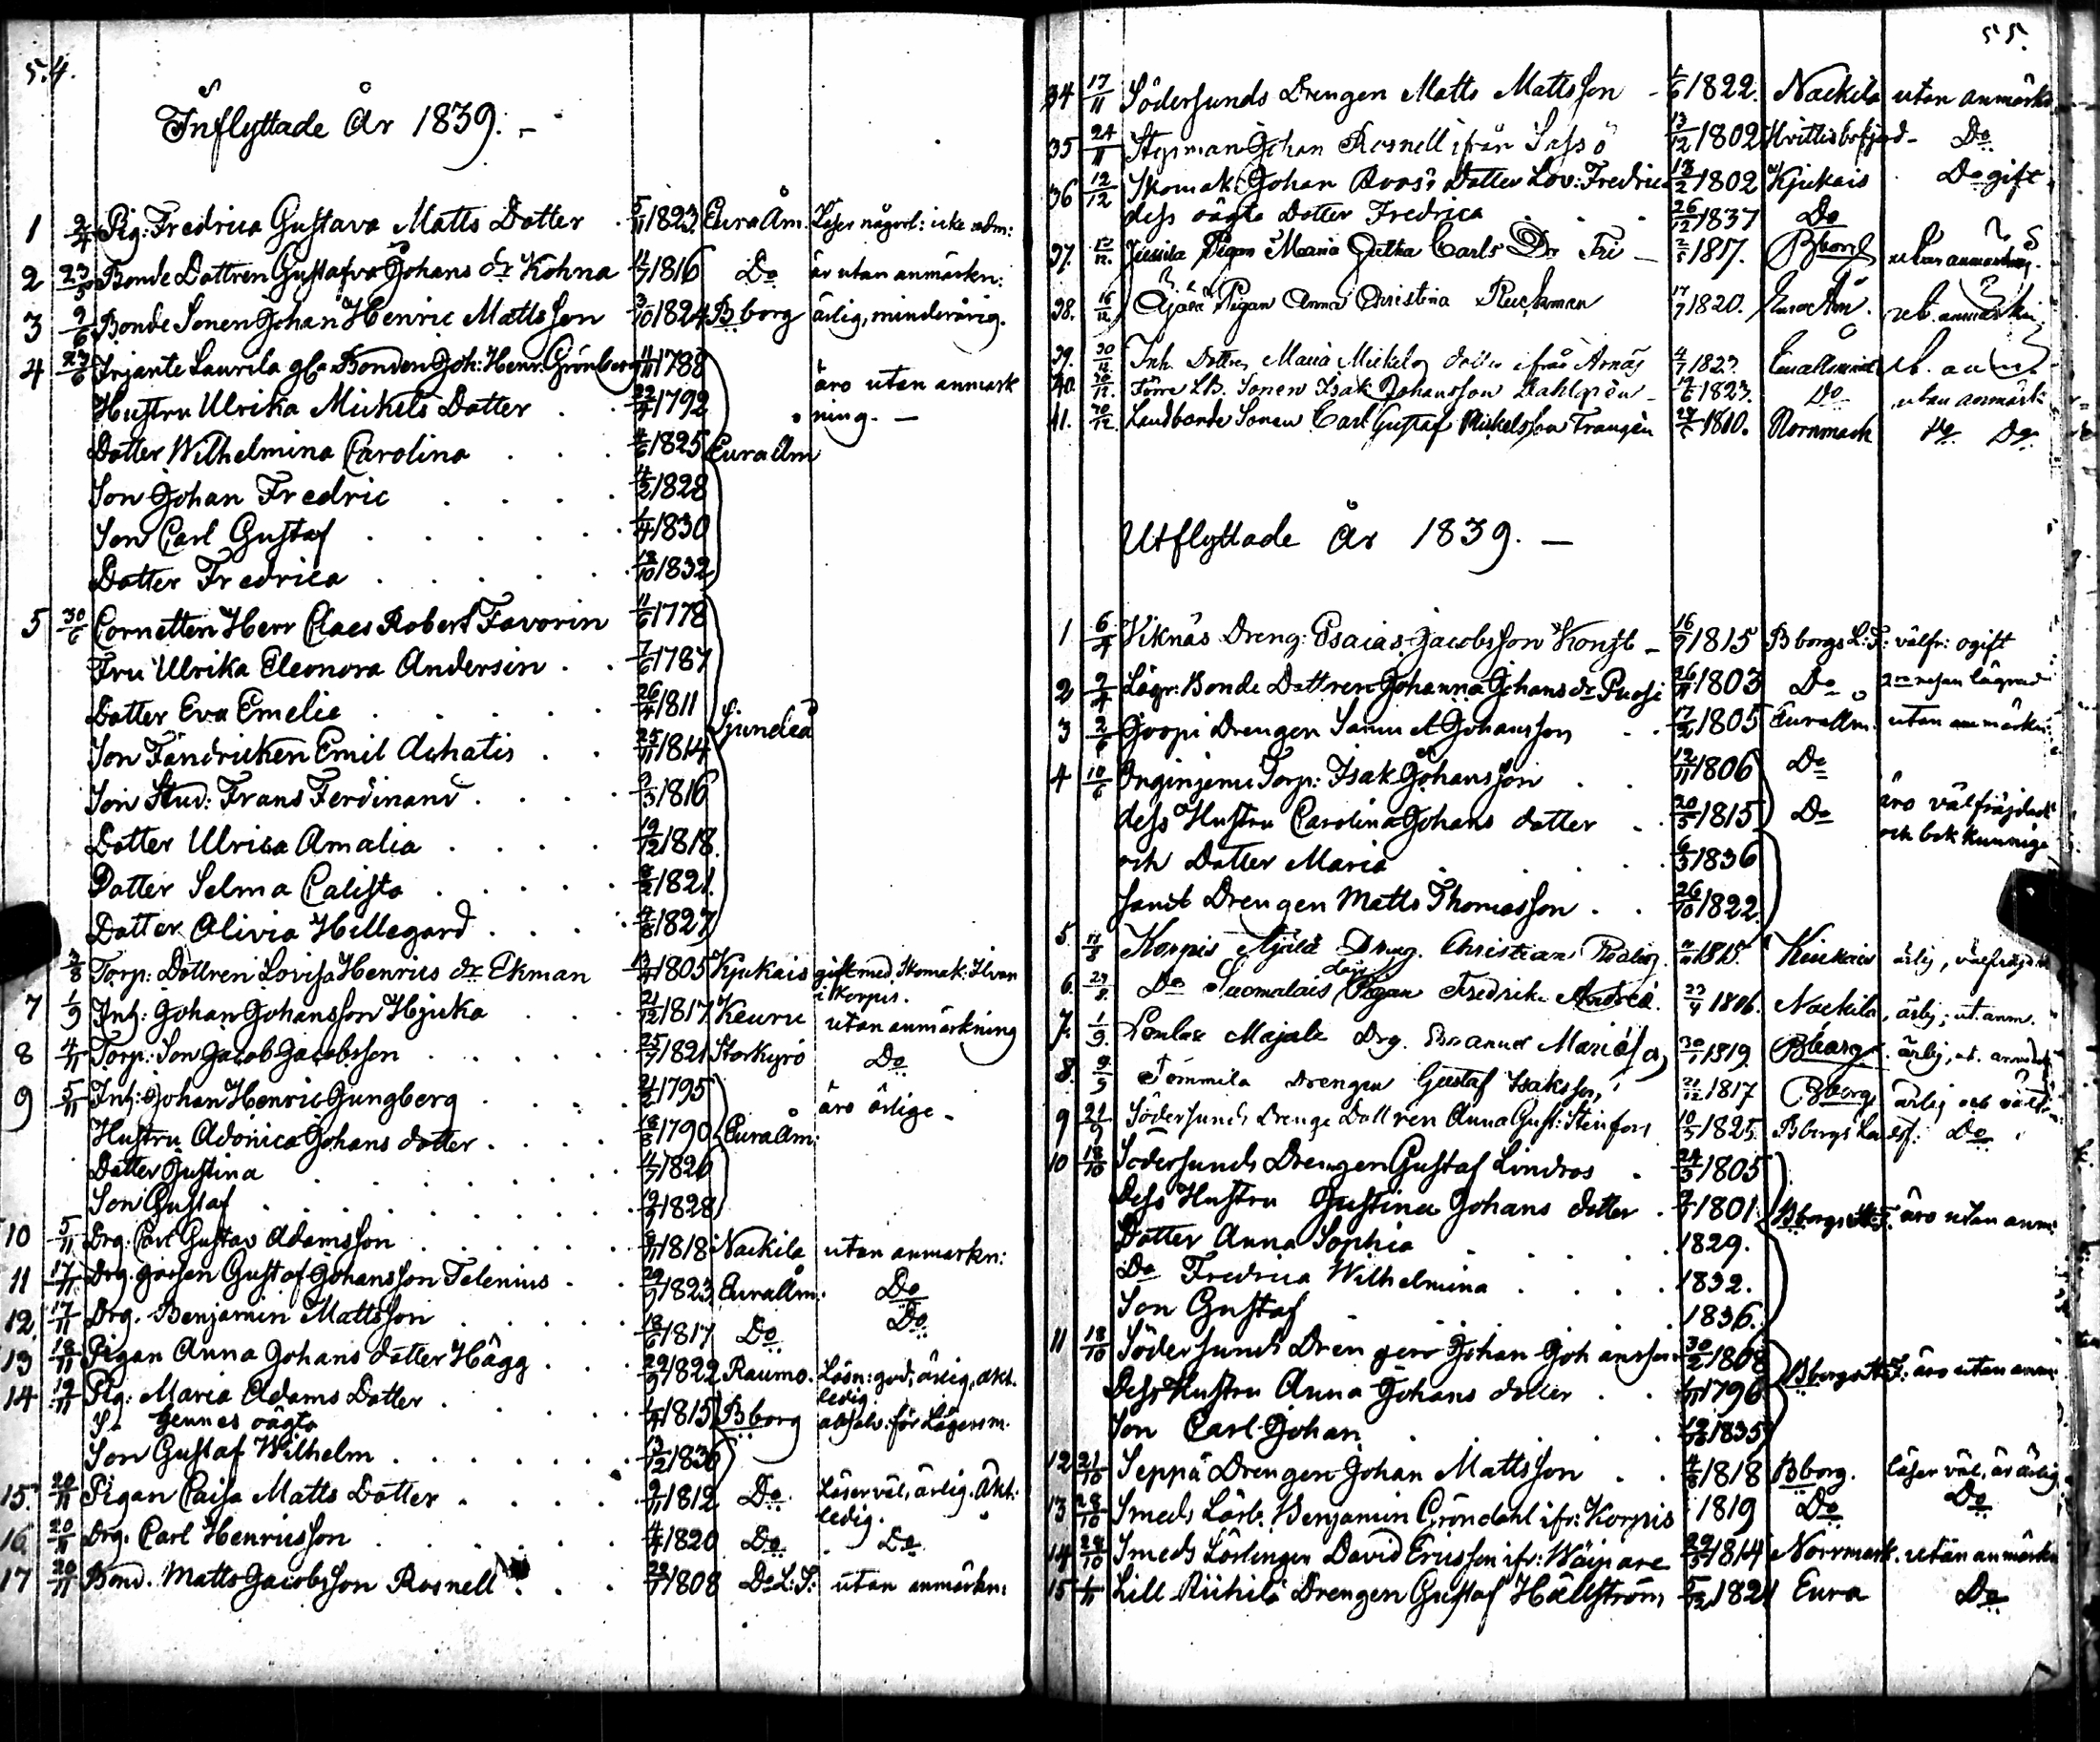 54.
Inflyttade År 1839. -
1 2/4 Pig: Fredrica Gustava Matts Dotter 5/11 1823. Eura Åm. Läser någorl: icke adm:
2 23/5 Bonde Dottren Gustafva Johans dr Kohna 1816 Do är utan anmärkn:
3 9/6 Bonde Sonen Johan Henric Mattsson 3/10 1824 Bborg ärlig, minderårig.
4 23/6 Irjante Laurila gla Bonden Joh: Henr: Grönberg 1788
Hustru Ulrika Mickels Dotter 22/4 1792 äro utan anmärk
ning. -
Dotter Wilhelmina Carolina 1825 Eura Åm
Son Johan Fredric 4/2 1828
Son Carl Gustaf 1/4 1830
Dotter Fredrica 18/10 1832
5 30/6 Cornetten Herr Claes Robert Favorin 11/6 1778
Fru Ulrika Eleonora Andersin 7/6 1787
Dotter Eva Emelie 26/4 1811
Son Fändricken Emil Achatis 25/11 1814 Sjundeå
Son Stud: Frans Ferdinand 9/3 1816
Dotter Ulrica Amalia 19/12 1818.
Dotter Selma Calista 8/2 1821.
Dotter Olivia Hillegard 1827
3/8 Torp: Dottren Lovisa Henrics dr Ekman 1805 Kjukais gift med Skomak: Ilvan
i Korpis.
7 1/9 Inh: Johan Johansson Hjuka 21/12 1817 Keuru utan anmärkning
8 4/11 Torp: Son Jacob Jacobsson 25/7 1821 Storkyro Do
9 5/11 Inh: Johan Henric Ljungberg 1795 äro ärlige -
Hustru Adonica Johans dotter 18/8 1790 Eura Åm:
Dotter Justina 4/7 1826
Son Gustaf 19/9 1828
10 5/11 Drg. Carl Gustav Adamsson 1818 Nackila utan anmärkn:
11 17/11 Drg. gossen Gustaf Johansson Telenius 29/9 1823 Eura Åm: Do
12 17/11 Drg. Benjamin Mattsson 18/6 1817 Do Do
13 18/11 Pigan Anna Johans dotter Hägg 29/9 1822 Raumo. Läsn: god, ärlig, äkt.
ledig.
14 19/11 Pig: Maria Adams Dotter 1815 Bborg absolv: för Lägersm.
Hennes oägta
Son Gustaf Wilhelm 13/12 1836
15. 20/11 Pigan Caisa Matts Dotter 9/11 1812 Do Läser väl, ärlig. Äkt:
ledig.
16 20/11 Drg. Carl Henricsson 4/4 1820 Do Do
17 20/11 Bond. Matts Jacobsson Rosnell 22/7 1808 Do L: F: utan anmärkn:
55.
34 17/11 Södersunds Drengen Matts Mattsson 1822. Nackila utan anmärkn
35 24/11 Stepman Johan Rosnell ifrån Sassö 13/12 1802 Hvittisbofjerd - Do
36 12/12 Skomak: Johan Roos's Dotter Lov: Fredrica 13/2 1802 Kjukais Do gift
dess oägta Dotter Fredrica 26/12 1837 Do
37. 12/12 Pigan Maria Greta Carls Dr Fri - 1817. Bborg utan anmärkning.
38. 16/12 Äjälä Pigan Anna Christina Ruckman 17/7 1820. Eura Åm. ut. anmärkn
39. 30/12 Inh. Dottren Maria Mickels dotter ifrån Arnäs 4/7 1823. Eura Åminne ut. anm.
40. 30/12 Förre LB. Sonen Isak Johansson Dahlgrén - 1823. Do utan anmärk
41. 30/12 Landbonde Sonen Carl Gustaf Mickelsson Frangén 1810. Norrmark Do Do
Utflyttade År 1839. -
1 6/4 Viknäs Dreng: Esaias Jacobsson Konst - 16/9 1815 Bborgs L: F: välfr: ogift
2 9/4 Lägr: Bonde Dottren Johanna Johans dr Puosi 26/11 1803 Do 2ra resan lägrad
3 2/6 Goopi Drengen Samuel Johansson 17/2 1805 Eura Åm. utan anmärkn:
4 10/6 Torp: Isak Johansson 12/11 1806 Do
dess Hustru Carolina Johans dotter 20/5 1815 Do äro välfräjdade
och Dotter Maria 6/3 1836 och bok kunnige
samt Drengen Matts Thomasson 26/10 1822.
5. Korpis Äjälä Dreng. Christian 1815. Kiukais ärlig, välfräjdad
6. Do Suomalais Pigan Fredrika Andreä. 23/4 1806. Nackila, ärlig; ut. anm.
7. 1/9. Majale Drg. Emanuel 30/7 1819. Bborg. ärlig, ut. anmärkn
8. 9/9 Tommila drengen Gustaf Isaksson, 21/12 1817 Bborg ärlig och
9 21/9 Södersunds Drenge Dottren Anna Gust: Stenfors 10/5 1825. Bborgs Landsf: Do
10 18/10 Södersunds Drengen Gustaf Lindros 24/3 1805
Dess Hustru Justina Johans dotter 1801. Bborgs L:F. äro utan anm:
Dotter Anna Sophia 1829.
Do Fredrica Wilhelmina 1832.
Son Gustaf 1836.
11 18/10 Södersunds Drengen Johan Johansson 30/2 1808
Dess Hustru Anna Johans dotter 1796 Bborgs L:F: äro utan anm
Son Carl Johan 1835
12 21/10 Seppä Drengen Johan Mattsson 4/8 1818 Bborg. läser väl, är ärlig
13 28/10 Smeds Lärl: Benjamin Gröndahl ifr: Korpis 1819 Do Do
14 28/10 Smeds Lärlingen David Ericsson ifr: Wäipare 29/3 1814 Norrmark. utan anmärkn
15 1/11 Lill Riihilä Drengen Gustaf Hällström 5/12 1821 Eura Do